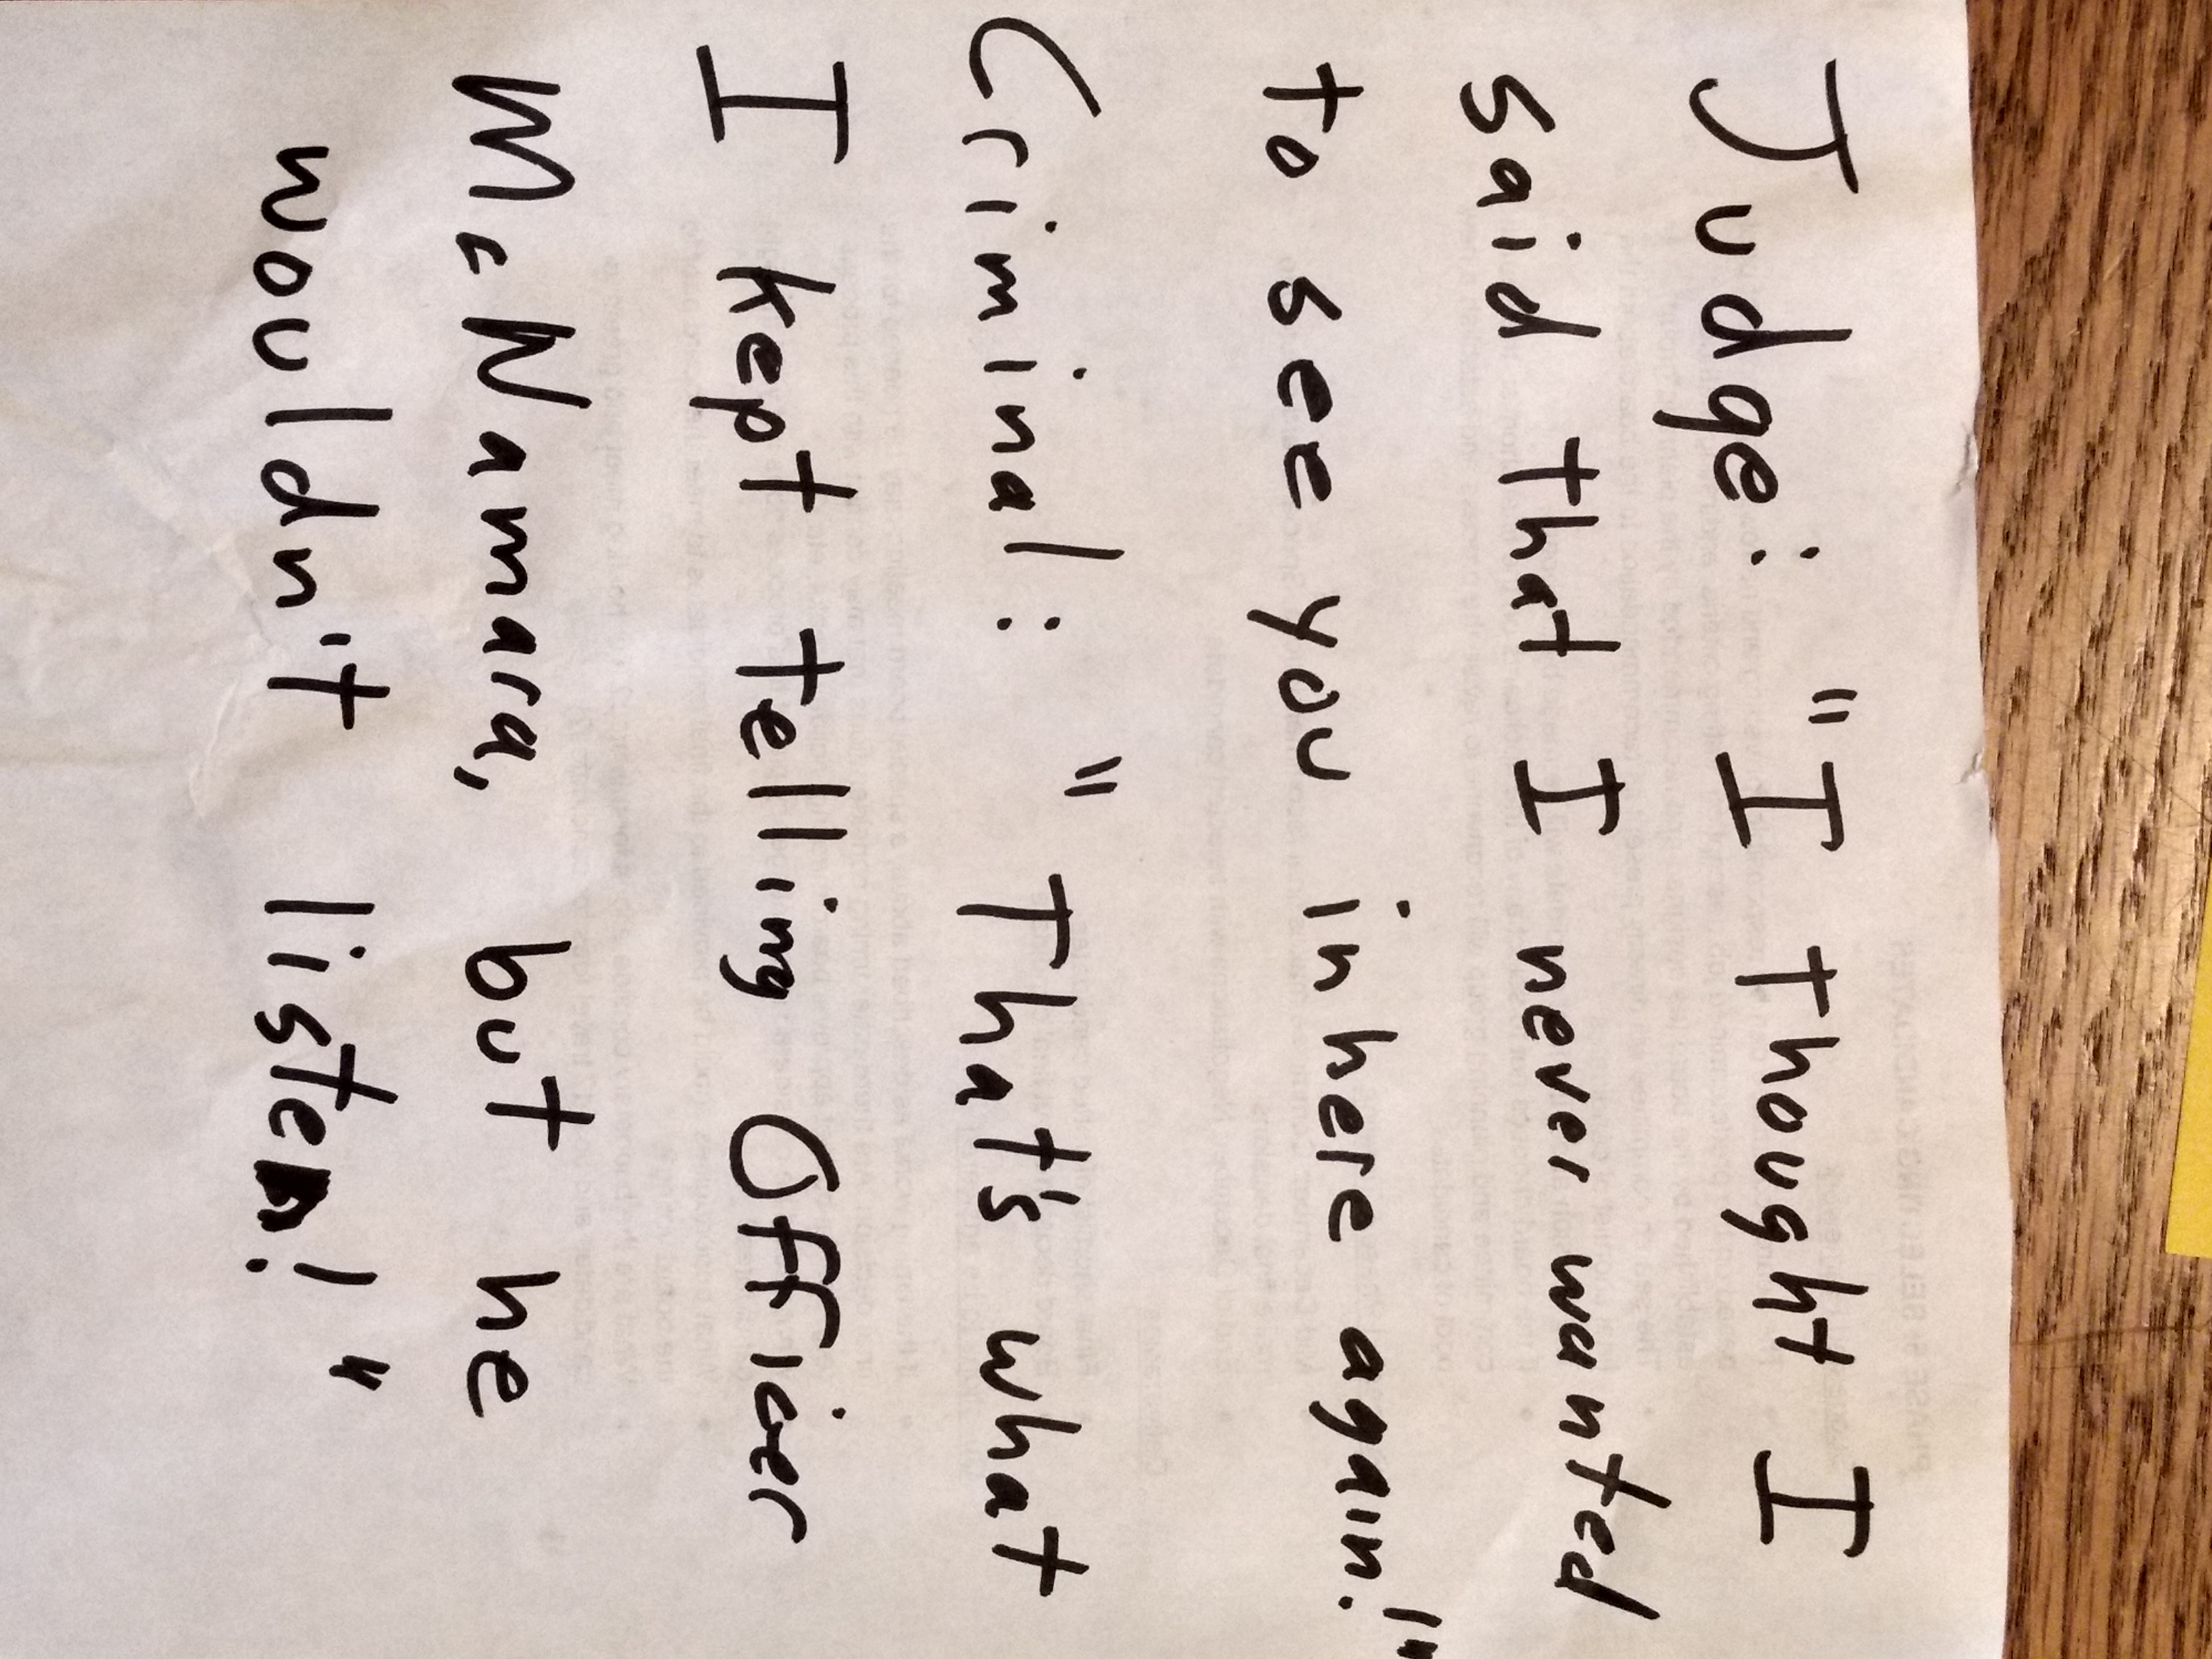 Judge: "I thought I
said that I never wanted
to see you in here again!"
Criminal: "That's what
I kept telling Officer
McNamara, but he
wouldn't listen!"